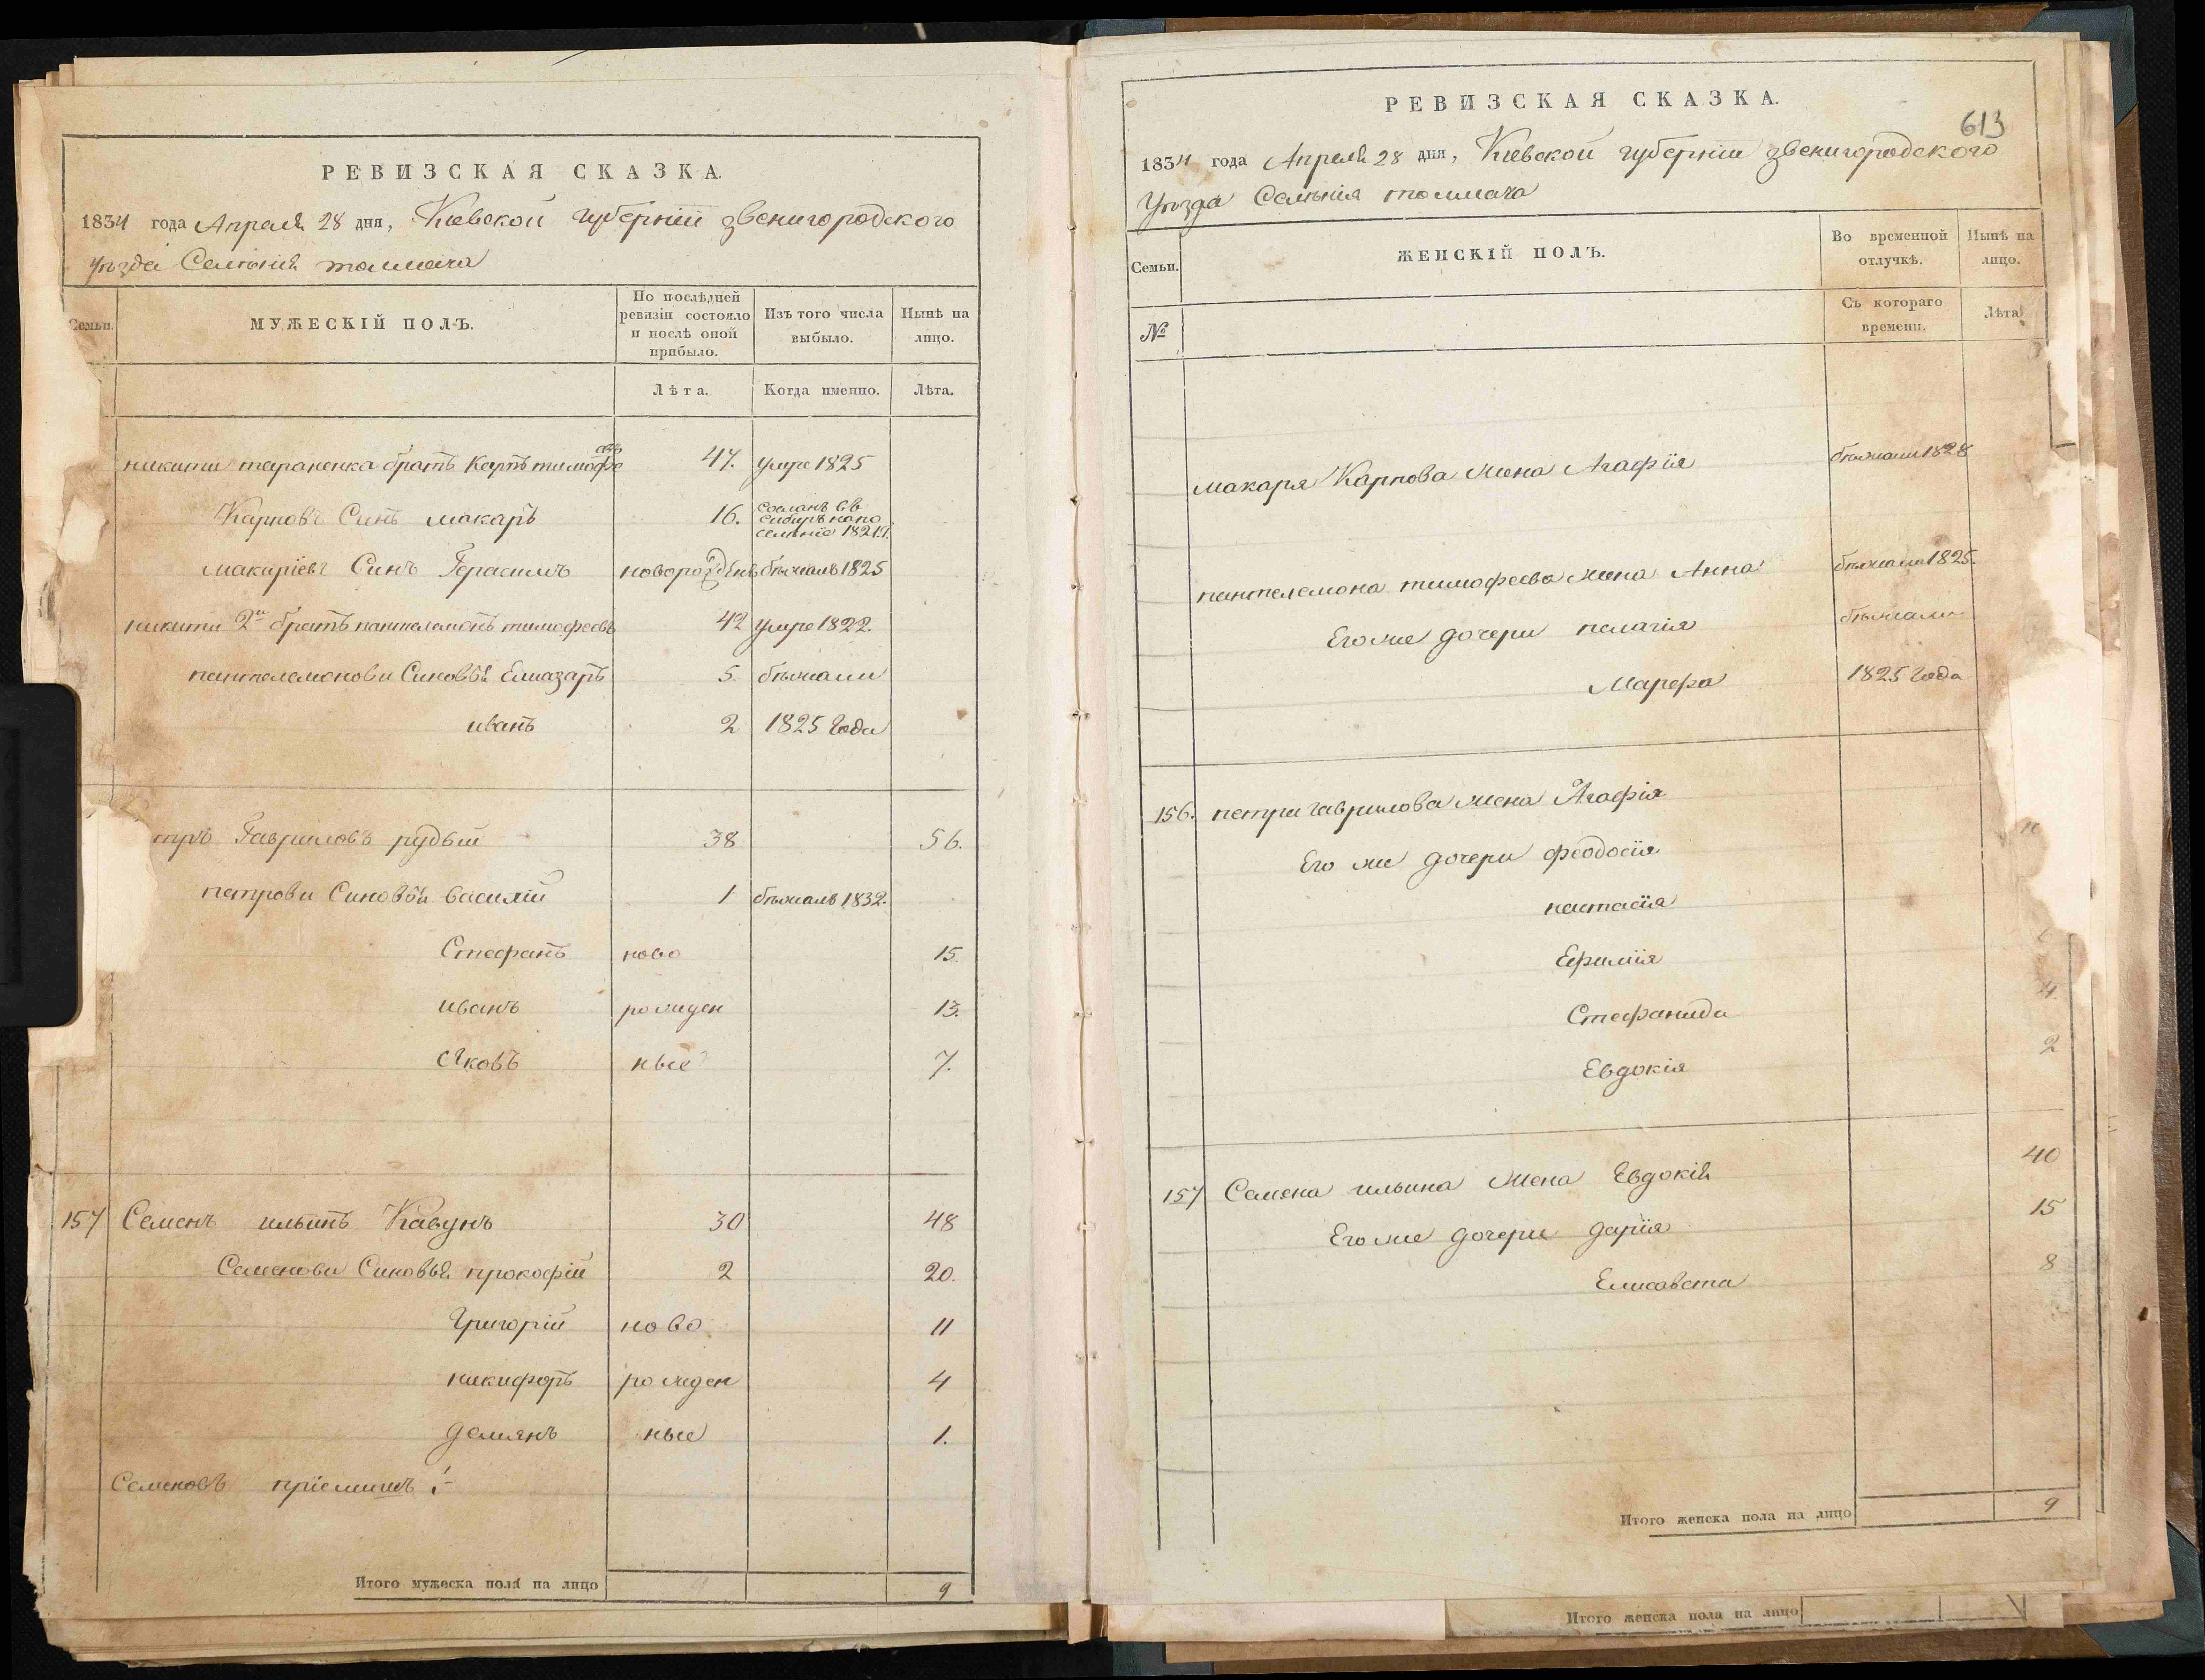 РЕВИЗСКАЯ СКАЗКА.
1834 года Апреля 28 дня, Киевской губернїи звенигородского
уѣзда Селенїя толмача
Семьи.
МУЖЕСКІЙ ПОЛЪ.
По послѣдней ревизіи состояло и послѣ оной прибыло.
Изъ того числа выбыло.
Нынѣ на лицо.
Лѣта.
Когда именно.
Лѣта.
никиты тараненка братъ Карпъ тимофеевъ 47. умре 1825
Карповъ Синъ макаръ 16. Сосланъ въ сибирь на поселѣнїе
макарїевъ Синъ Герасимъ новорожденъ бѣжалъ 1825
никиты 2й братъ пантелемонъ тимофеевъ 42 умре 1822.
пантелемонови Синовья Елиазаръ 5. бѣжали
иванъ 2 1825 Года
Гавриловъ рудый 38 56.
петрови Синовья василїй 1 бѣжалъ 1832.
Стефанъ ново 15.
иванъ рожден 13.
Яковъ ные 7.
157 Семенъ ильинъ Кавунъ 30 48
Семенови Синовья прокофїй 2 20.
Григорїй ново 11
никифоръ рожден 4
демянъ ные 1.
Семеновъ прїемишъ
Итого мужеска пола на лицо 9
РЕВИЗСКАЯ СКАЗКА.
613
1834 года Апреля 28 дня, Киевской губернїи звенигородского
Уѣзда Селенїя толмача
Семьи.
ЖЕНСКІЙ ПОЛЪ.
Во временной отлучкѣ.
Нынѣ на лицо.
№
Съ котораго времени.
Лѣта
макаря Карпова жена Агафїя бѣжали 1828
пантелемона тимофеева жена Анна бѣжала 1825.
Его же дочери пелагїя бѣжали
Марфа 1825 Года
156. петра гаврилова жена Агафїя
Его же дочери феодосїя
настасїя
Ефимїя
Стефанида 4
Евдокїя 2
157 Семена ильина жена Евдокїя 40
Его же дочери дарїя 15
Елисавета 8
Итого женска пола на лицо 9
Итого женска пола на лицо